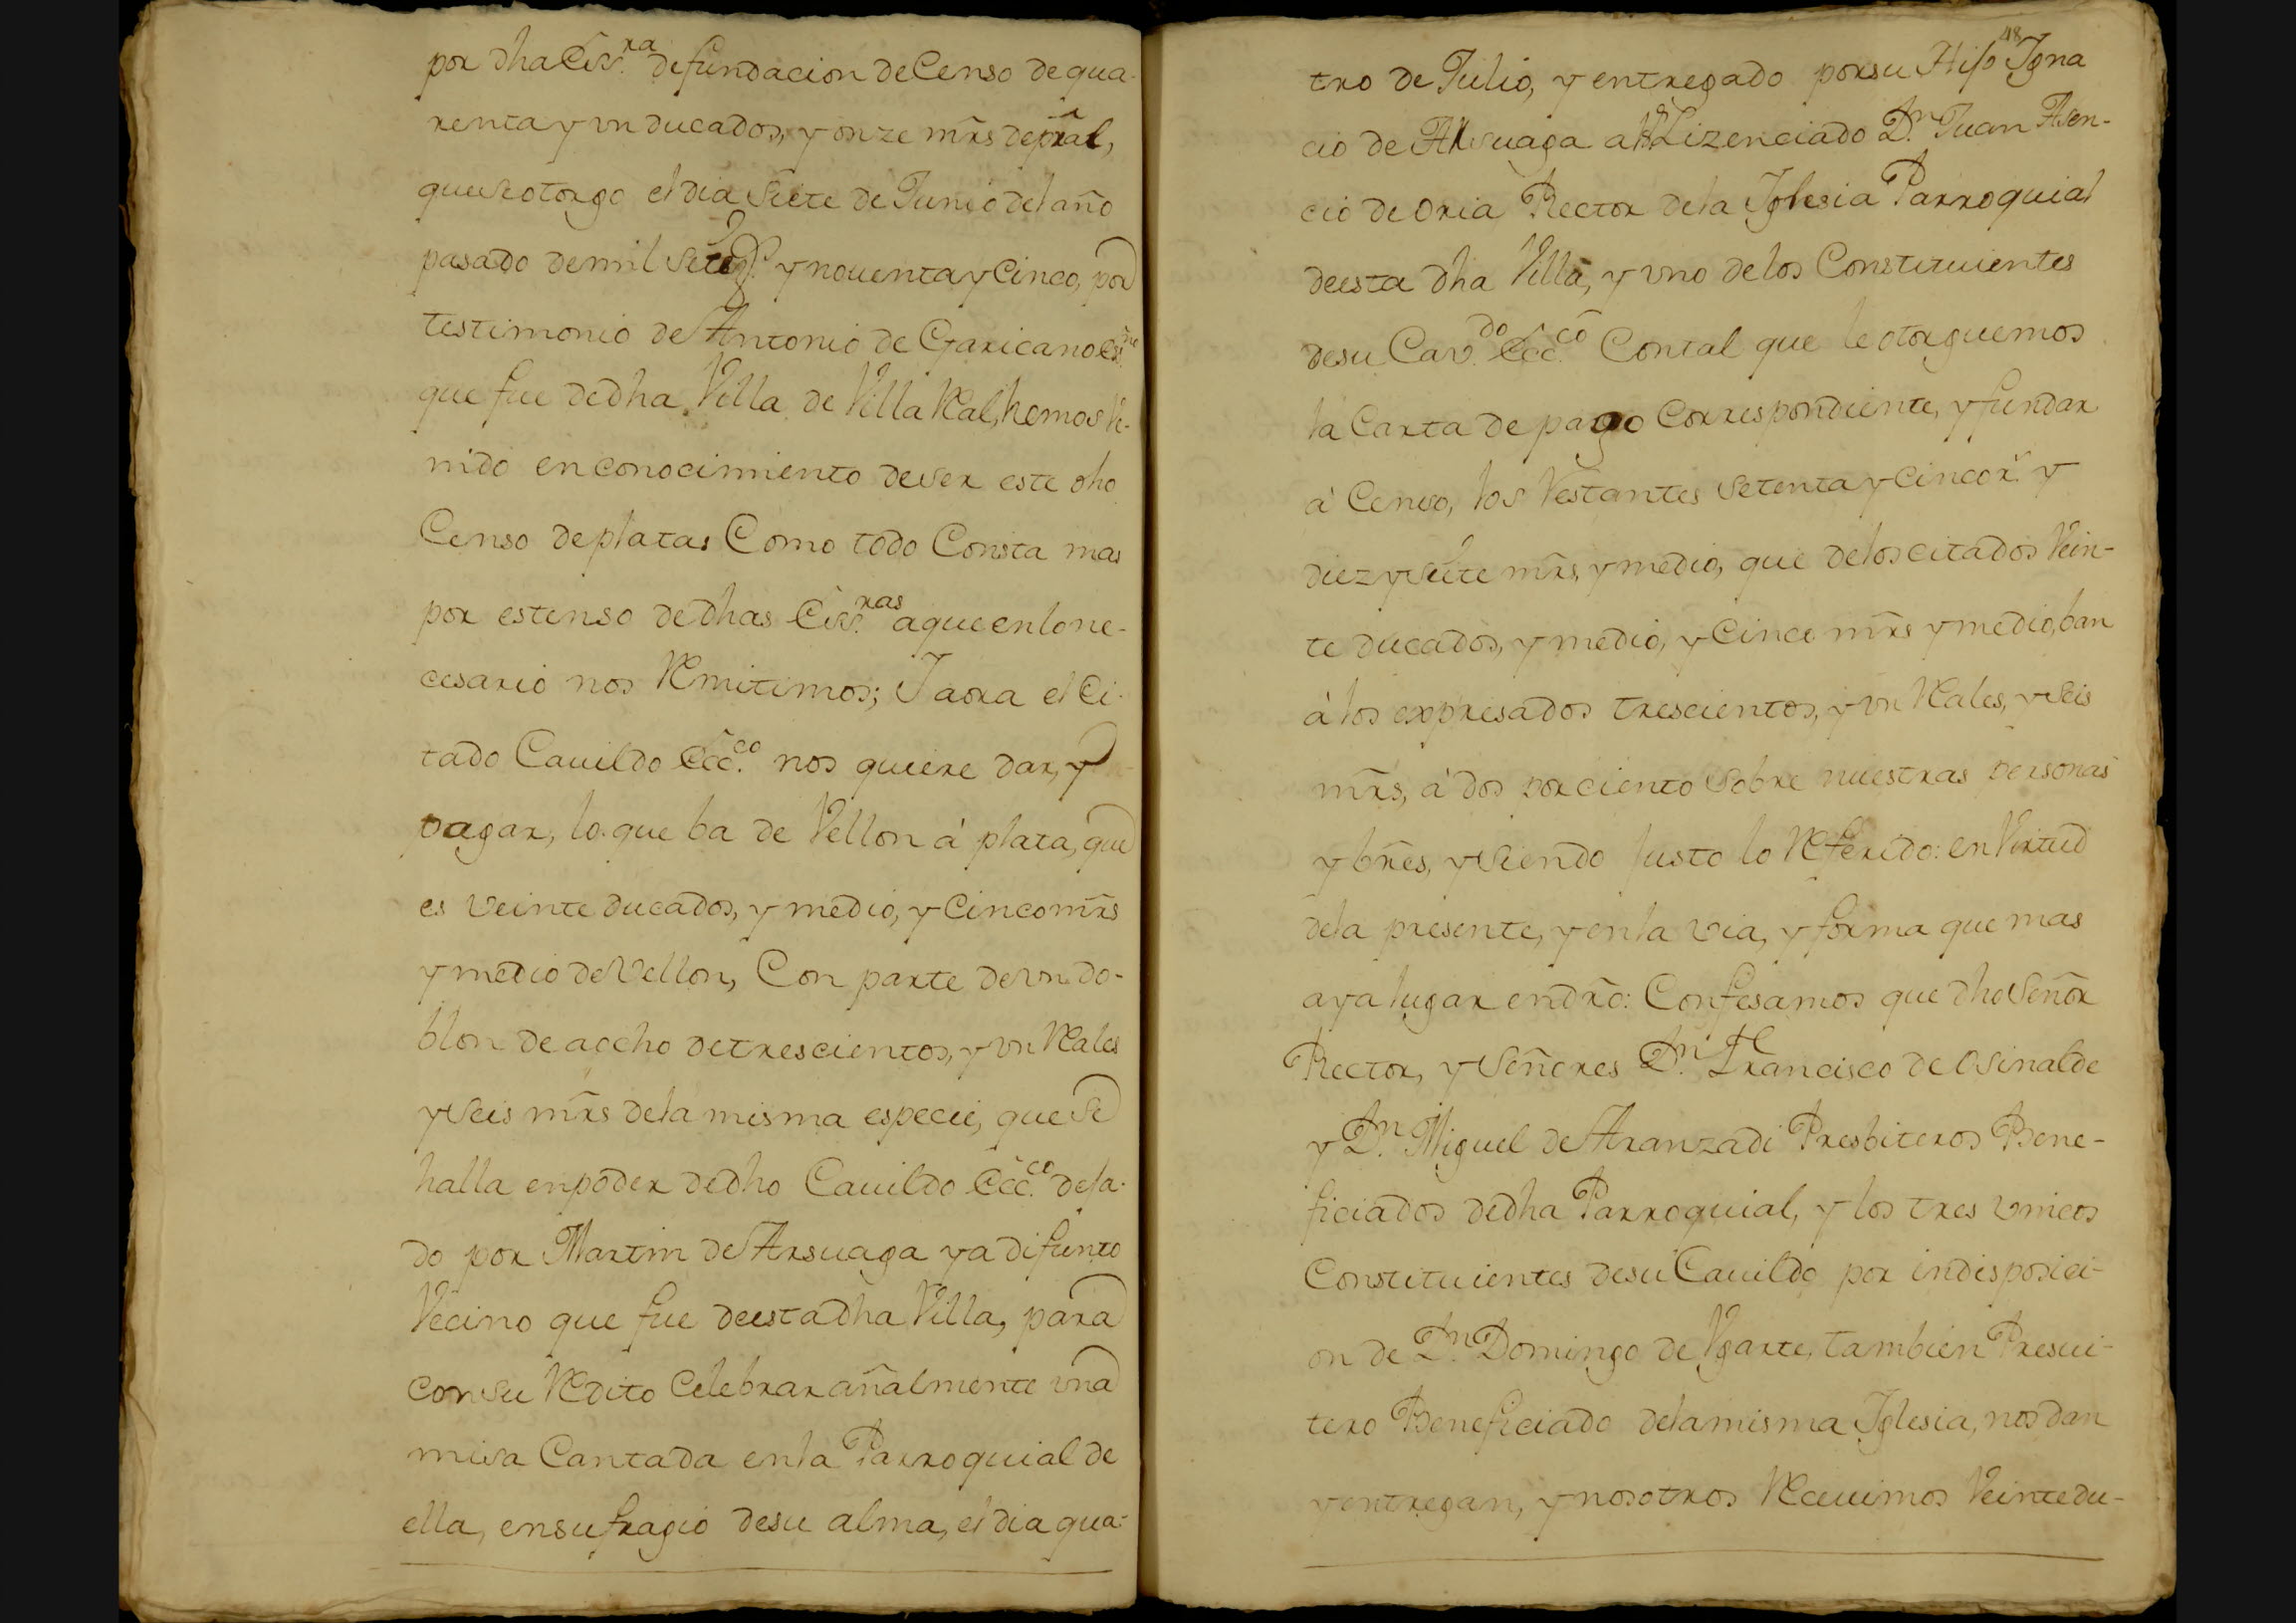 por dha Esc.ra de fundacion de Censo de qua-
renta y vn ducados, y onze mr̃s de pr̃al,
que se otorgo el dia Siete de Junio del año
pasado de mil Seteçs. y nouenta y Cinco, por
testimonio de Antonio de Garicano es.no
que fue de dha Villa de Villa Real, hemos Ve-
nido en conocimiento de ser este dho
Censo de platas Como todo Consta mas
por estenso de dhas Esc.ras a que en lo ne-
cesario nos Remitimos; Y aora el Ci-
tado Cauildo Ecc.co nos quiere dar, y
pagar, lo que ba de Vellon à plata, que
es veinte ducados, y medio, y Cinco mr̃s
y medio de Vellon, Con parte de vn do-
blon de aocho de trescientos, y vn Reales
y Seis mr̃s de la misma especie, que Se
halla en poder de dho Cauildo Ecc.co deja-
do por Martin de Arsuaga ya difunto
Vecino que fue de esta dha Villa, para
con su Redito Celebrar añalmente vna
misa Cantada en la Parroquial de
ella, en sufragio de su alma, el dia qua-
48
tro de Julio, y entregado por su Hijo Igna
cio de Arsuaga a Lizenciado D.n Juan Asen-
cio de Oria Rector de la Iglesia Parroquial
de esta dha Villa, y vno de los Constituientes
de su Cav.do Ecc.co Con tal que le otorguemos
la Carta de pago Correspondiente, y fundar
à Censo, los Restantes Setenta y Cinco r.s y
diez y Siete mr̃s, y medio, que de los citados Vein-
te ducados, y medio, y Cinco mr̃s y medio, ban
à los expresados trescientos, y vn Reales, y Seis
mr̃s, à dos por ciento Sobre nuestras personas
y bñes, y Siendo Justo lo Referido: en Virtud
de la presente, y en la via, y forma que mas
aya lugar en dr̃o: Confesamos que dho Señor
Rector, y Señores D.n Francisco de Osinalde
y D.n Miguel de Aranzadi Presbiteros Bene-
ficiados de dha Parroquial, y los tres vnicos
Constituientes de su Cauildo por indisposici-
on de D.n Domingo de Vgarte, tambien Presui-
tero Beneficiado de la misma Iglesia, nos dan
y entregan, y nosotros Receuimos Veinte du-